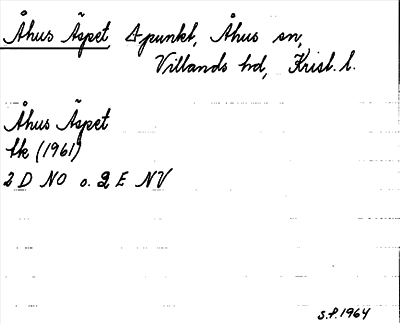 Åhus Äspet, Δpunkt, Åhus sn,
Villands hd, Krist. l.
Åhus Äspet
Ek (1961)
2 D NO o. 2 E NV
S.F. 1964